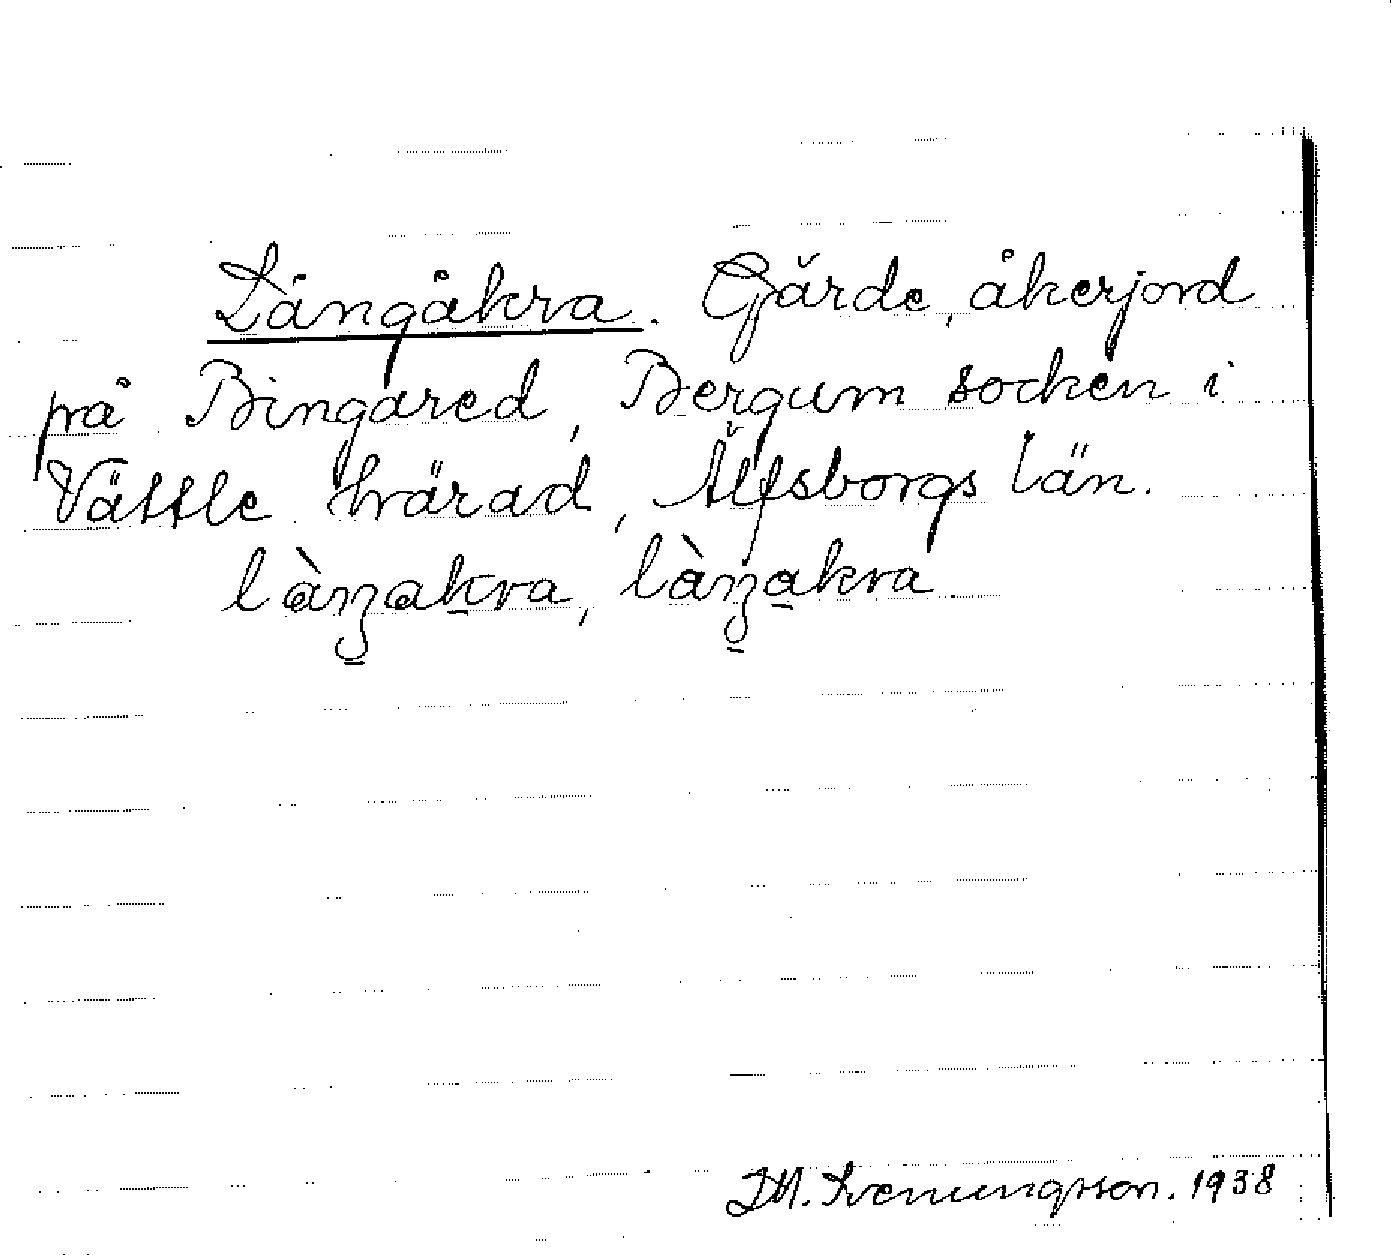 Långåkra. Gärde, åkerjord
på Bingared, Bergum socken i
Vättle härad, Älfsborgs län.
làŋakra, làŋakra
1938